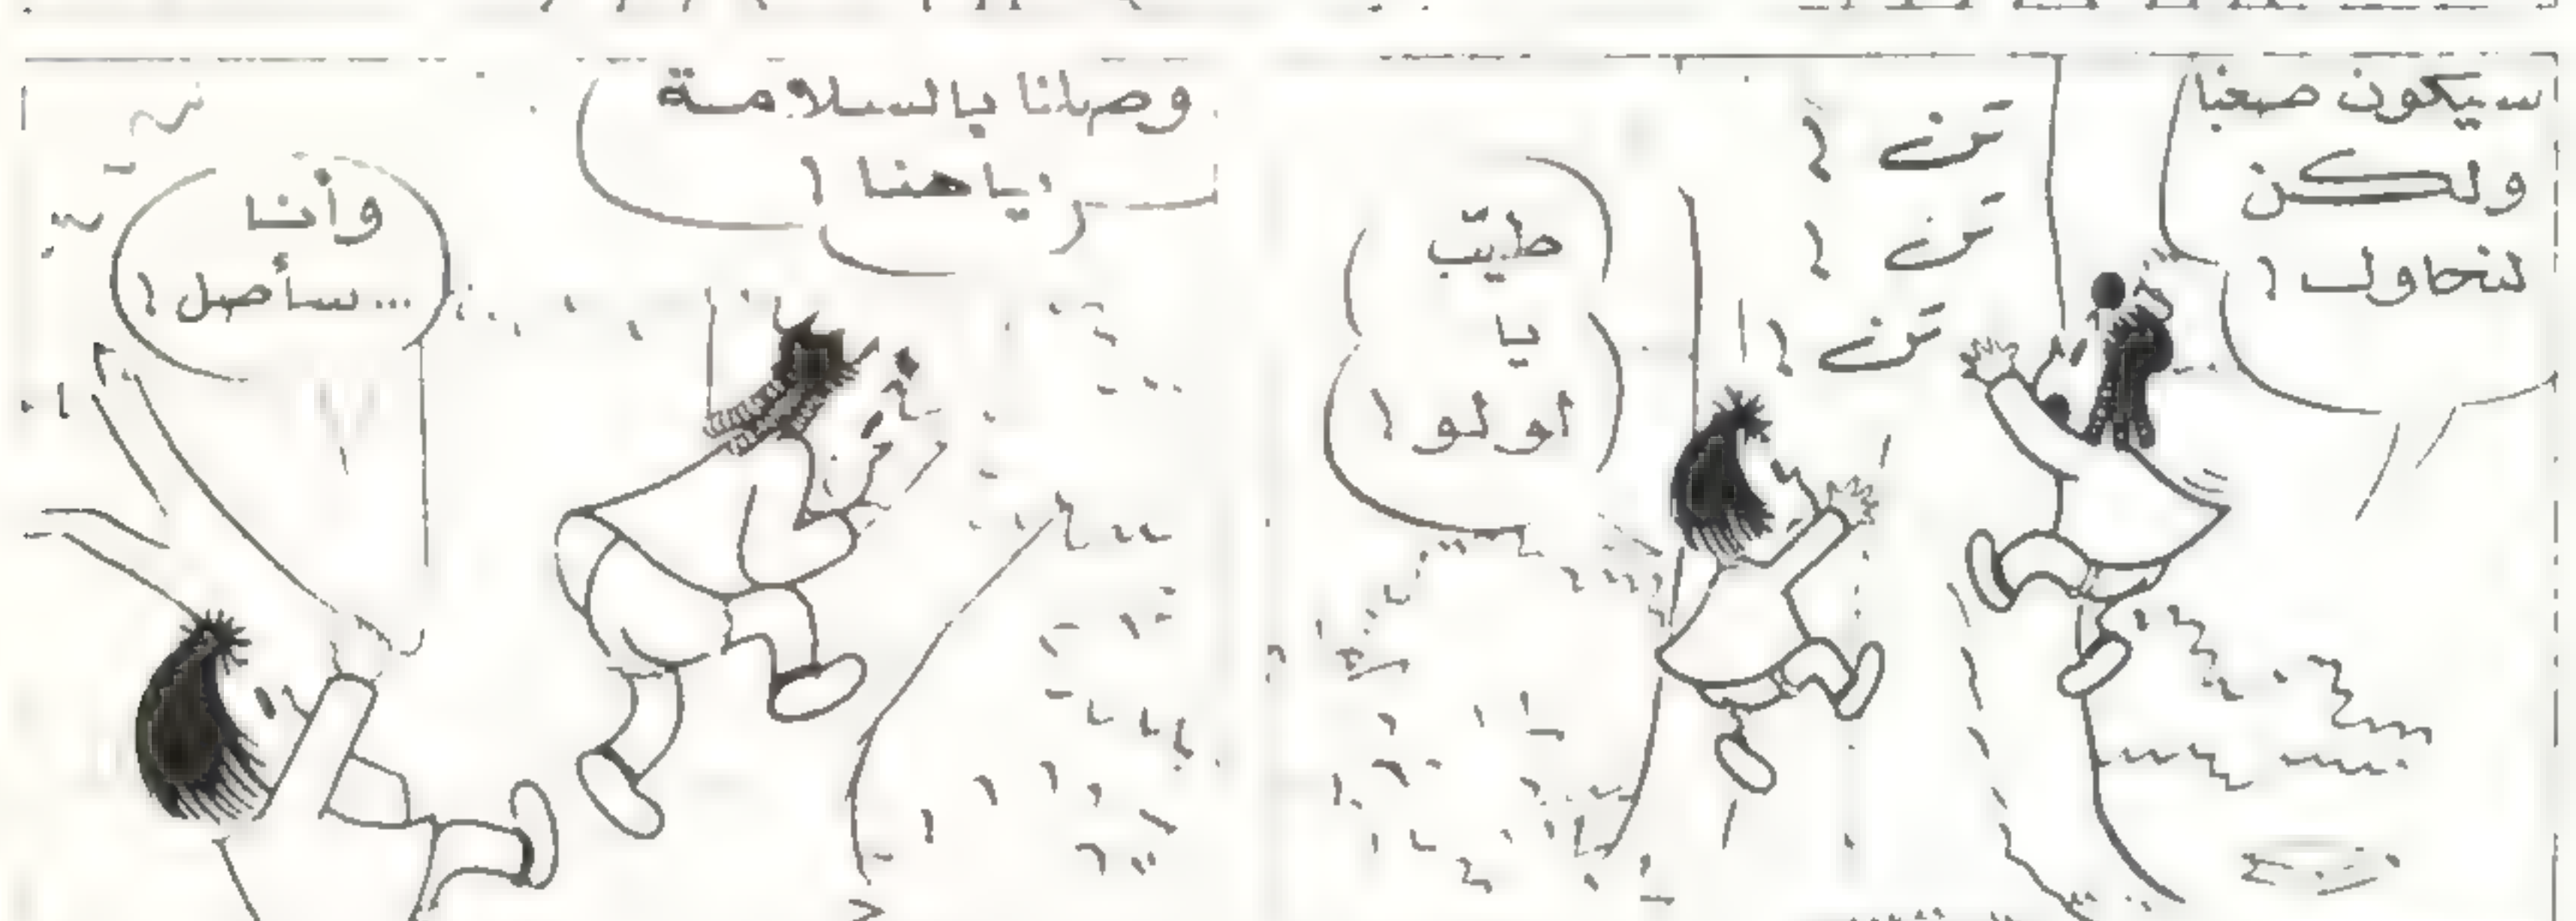 سيكون صعبا
ولكن
لنحاول !
تن !
تن !
تن !
طيّب
يا
لولو !
وصلنا بالسلامة
يا هنا !
وأنا
... سأصل !